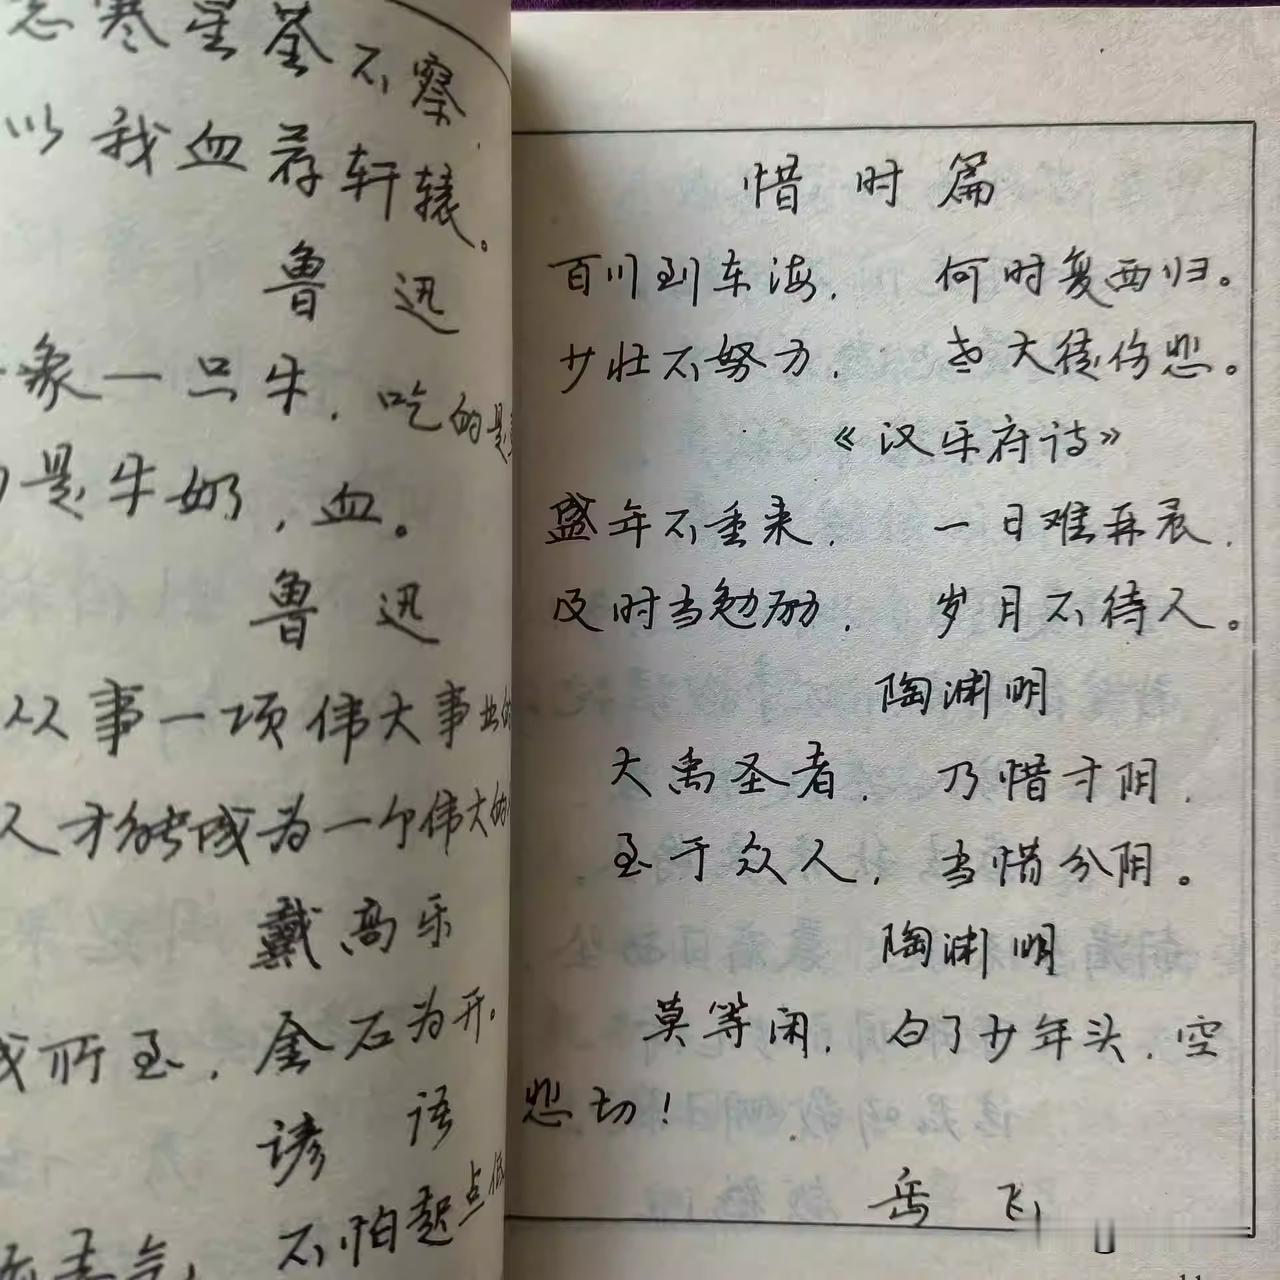 寒星荃不察
以我血荐轩辕。
鲁 迅
象一只牛，吃的是
是牛奶，血。
鲁 迅
从事一项伟大事业的
人才能成为一个伟大的
戴高乐
所至，金石为开。
谚 语
不怕起点低
惜 时 篇
百川到东海， 何时复西归。
少壮不努力， 老大徒伤悲。
《汉乐府诗》
盛年不重来， 一日难再晨，
及时当勉励， 岁月不待人。
陶渊明
大禹圣者， 乃惜寸阴，
至于众人， 当惜分阴。
陶渊明
莫等闲，白了少年头，空
悲切！
岳 飞
11